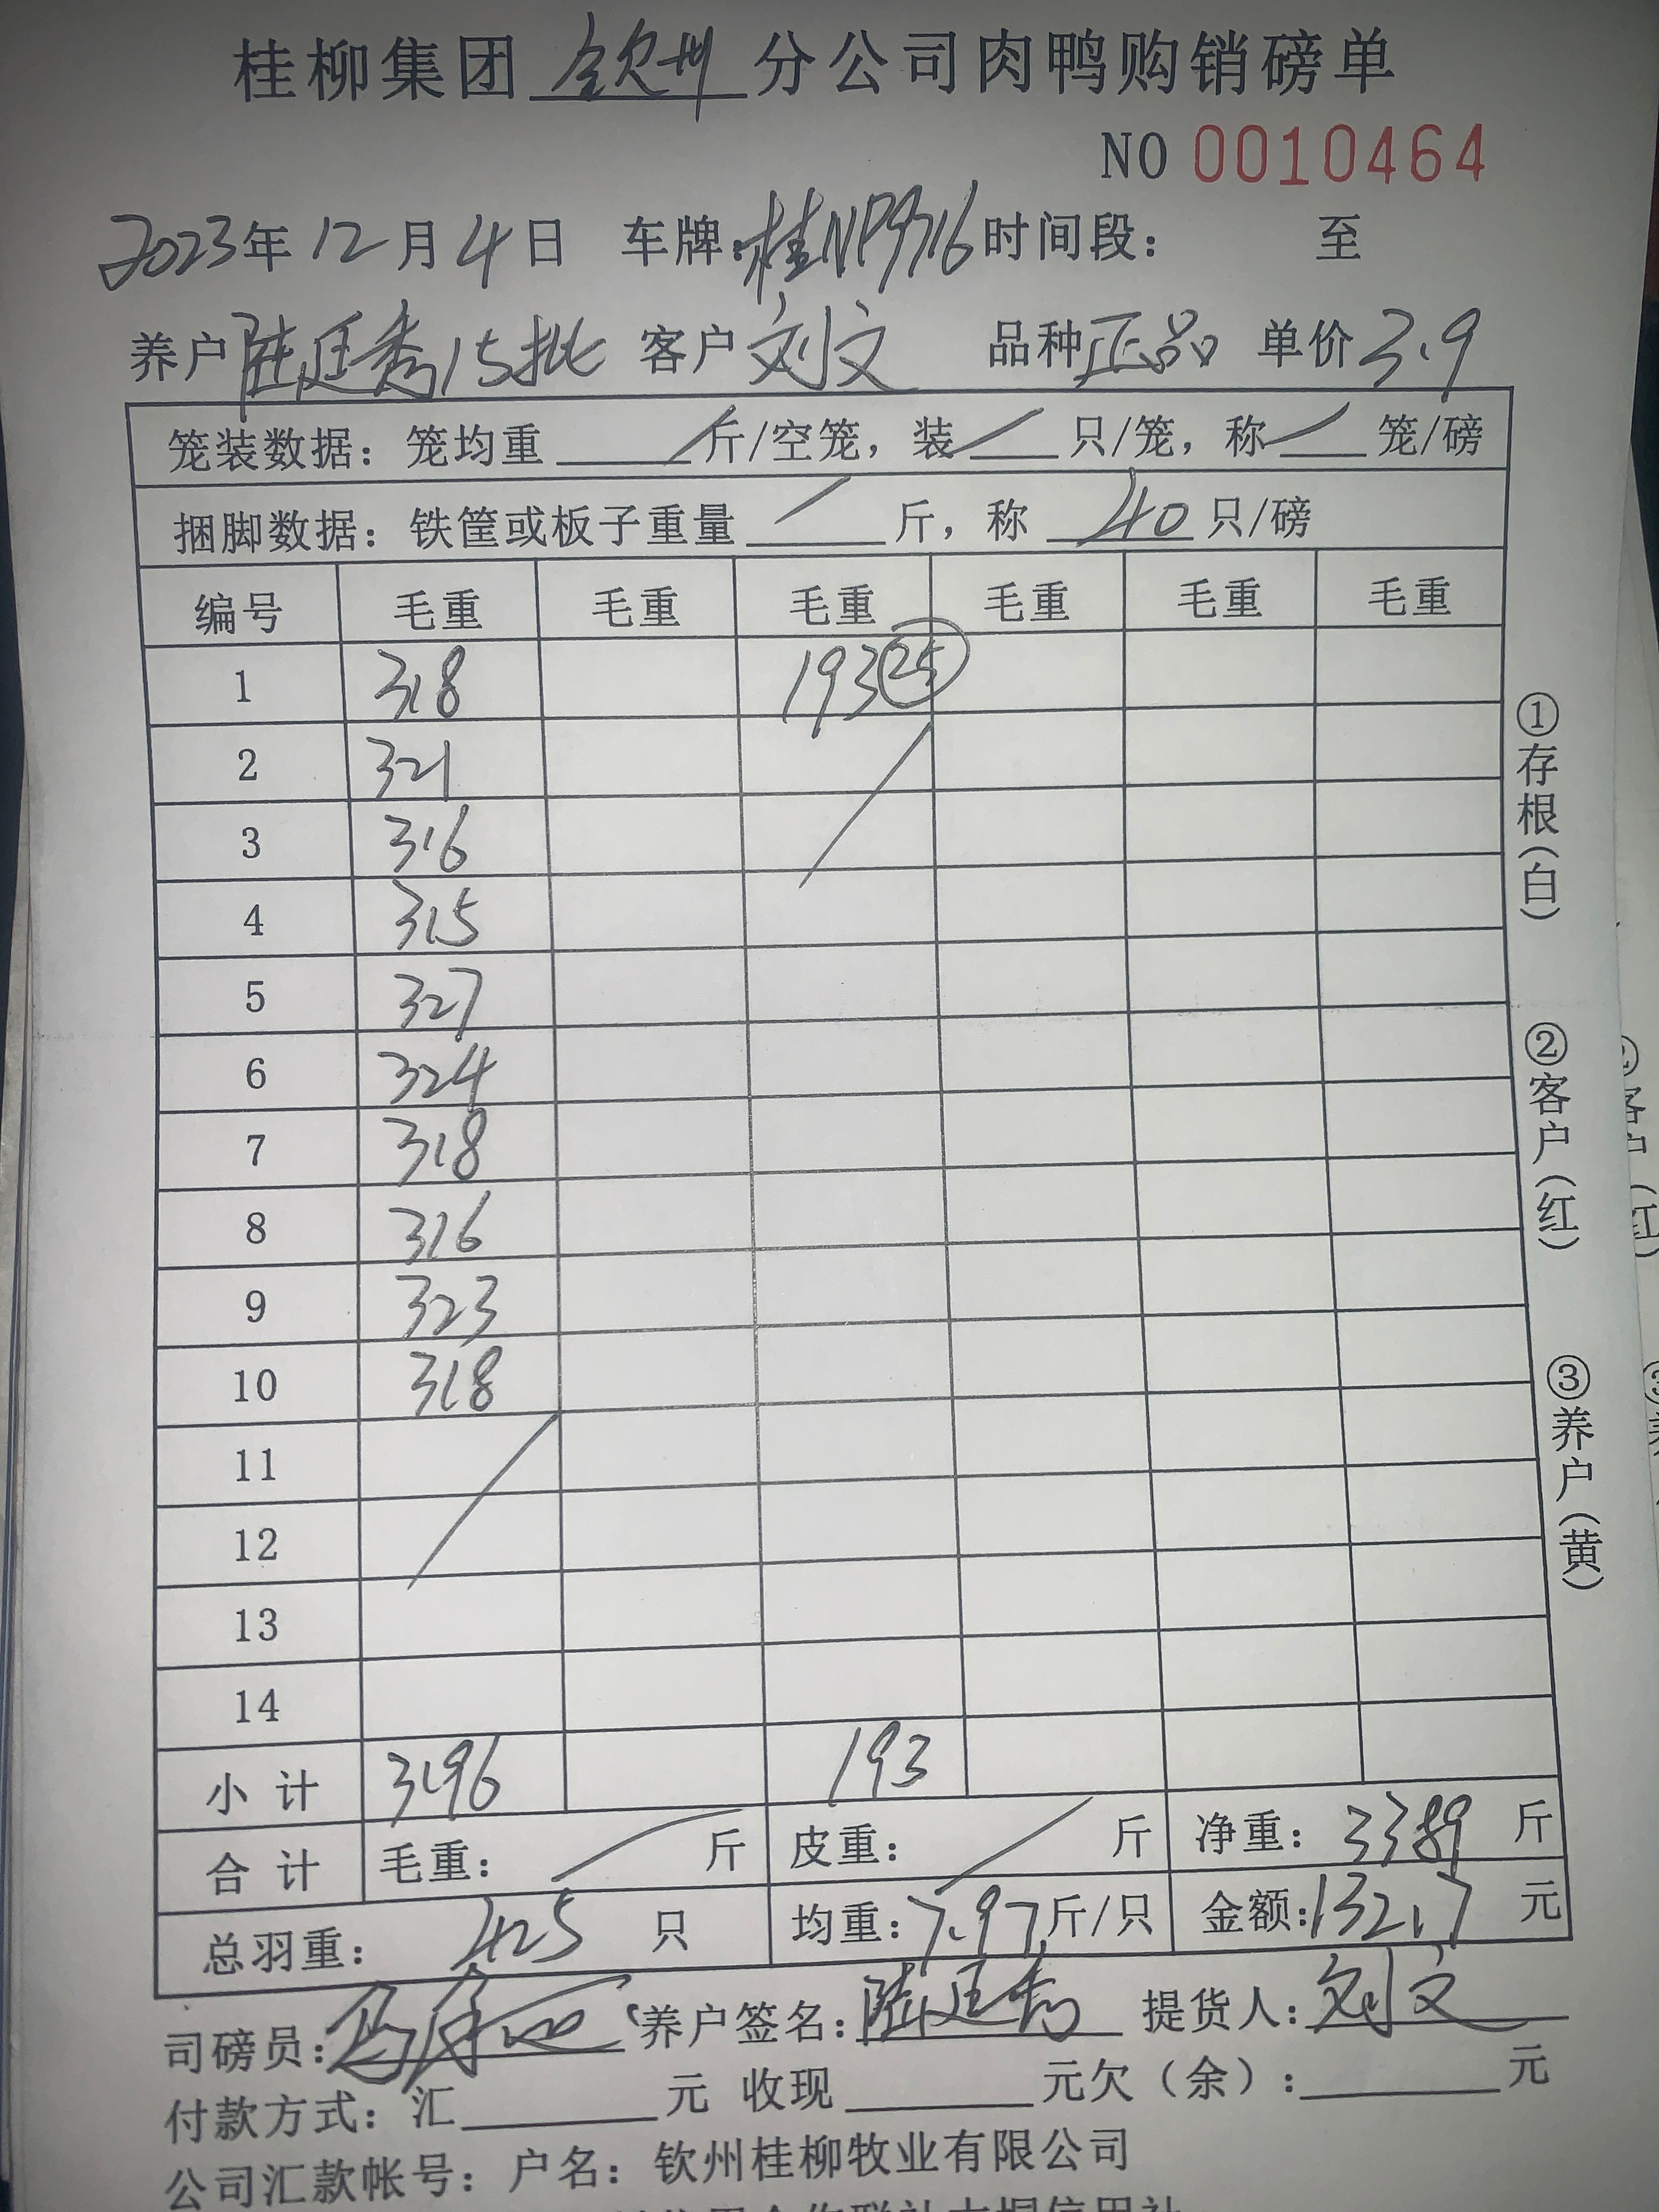 桂柳集团 钦州 分公司肉鸭购销磅单
NO 0010464
2023年 12月 4日 车牌:桂NP9716 时间段: 至
养户 陆廷秀15批 客户 刘文 品种 正品 单价 3.9
笼装数据: 笼均重 / 斤/空笼, 装 / 只/笼, 称 / 笼/磅
捆脚数据: 铁筐或板子重量 / 斤, 称 40 只/磅
编号 毛重 毛重 毛重 毛重 毛重 毛重
1 318 193 25
2 321
3 316
4 315
5 327
6 324
7 318
8 316
9 323
10 318
11
12
13
14
小计 3196 193
合计 毛重: / 斤 皮重: / 斤 净重: 3389 斤
总羽重: 425 只 均重: 7.97 斤/只 金额: 132.7 元
司磅员: 养户签名: 陆廷秀 提货人: 刘文
付款方式: 汇 元 收现 元欠(余): 元
公司汇款帐号: 户名: 钦州桂柳牧业有限公司
①存根(白)
②客户(红)
③养户(黄)